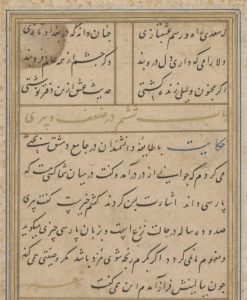 که سعدی راه و رسم عشقبازی چنان داند که در بغداد تازی
دلارامی که داری دل درو بند دگر چشم از همه عالم فروبند
اگر مجنون و لیلی زنده گشتی حدیث عشق ازین دفتر نوشتی
باب ششم در ضعف و پیری
حکایت با طایفه دانشمندان در جامع دمشق بحثی
می کردم که جوانی از در درآمد و گفت در میان شما کسی هست که
پارسی داند اشارت بمن کردند گفتم خیرست گفت پیری
صد و ده ساله در حالت نزع است و بزبان پارسی چیزی میگوید
و مفهوم ما نمی گردد اگر بکرم رنجه شوی مزد باشد مگر وصیتی می کند
چون ببالینش فراز آمدم این می گفت